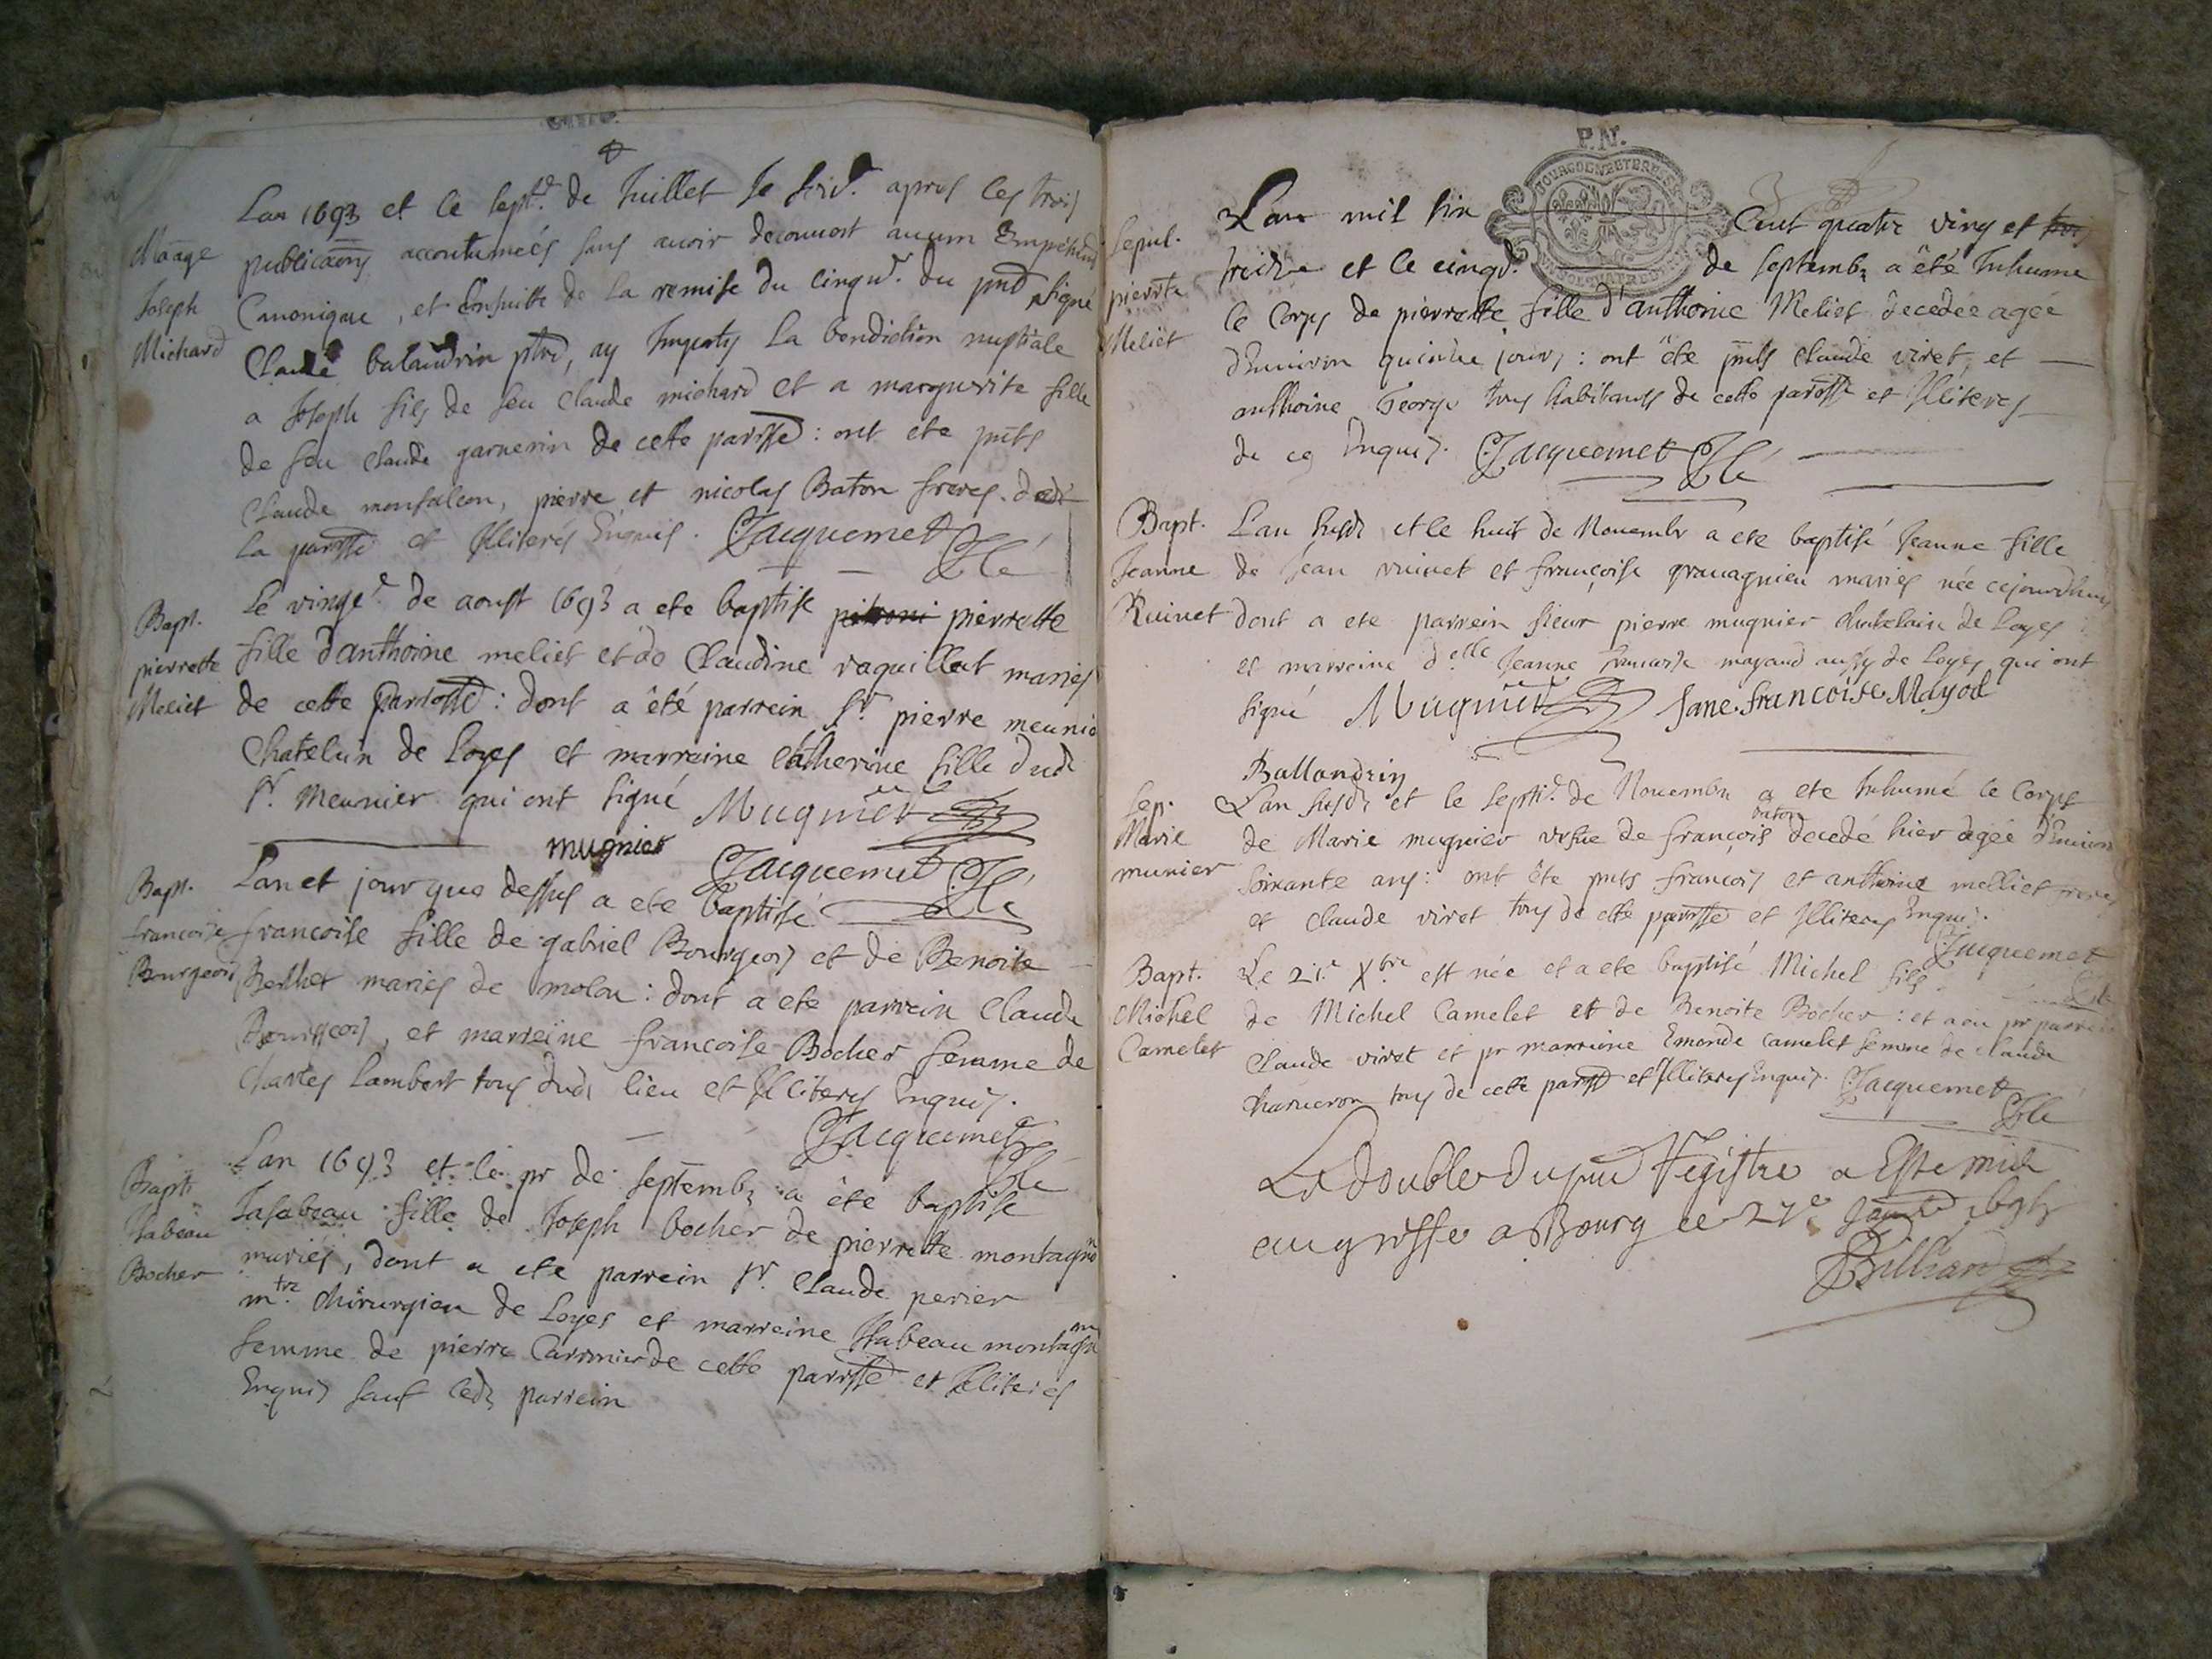 Mãage
Joseph
Michard
Lan 1693 et le sept.e de Juillet Je après les trois
publicãons accoutumeés sans auoir decouuert aucun Empêchmt
Canonique, et Ensuitte de la remise du cinqu.e du pnt signé
Claude balandrin ptre, ay Imparty La benediction nuptiale
a Joseph fils de feu Claude michard et a marguerite fille
de feu claude garnerin de cette parisse : ont éte pnts
Claude monfalcon, pierre et nicolas Baton freres dud
la parisse et Illiterés Enquis. Jacquemet
Bapt.
pierrette
Meliet
Le vingt.e de aoust 1693 a ete baptisé pierrette
fille d'anthoine meliet et de Claudine raquillet mariés
de cette parroisse : dont a été parrein Sr. pierre meunie
Chatelain de Loyes et marreine Catherine fille dudi
Sr. Meunier qui ont signé Mugnier
mugnier Jacquemet
Bapt.
francoise
Bourgeois
Lan et jour que dessus a ete baptisé
francoise fille de gabriel Bourgeois et de Benoite
Berthet mariés de molon : dont a ete parrein Claude
Bourgeois, et marreine francoise Bocher femme de
Charles Lambert tous dudi lieu et Illiterés Enquis.
Jacquemet
Bapt.
Isabeau
Bocher
Lan 1693 et le pr de septemb. a éte baptisé
Isabeau fille de Joseph bocher de pierrette montagnon
mariés, dont a ete parrein Sr. Claude perier
mtre. chirurgien de Loyes et marreine Isabeau montagnon
femme de pierre Carronier de cette parisse et Illiterés
Enquis sauf ledi parrein
P.N.
Sepul.
pierrete
Meliet
Lan mil six Cent quatre ving et
treize et le cinqu.e de septemb. a été Inhume
le Corps de pierrette fille d'anthoine Meliet decedée agée
d'Enuiron quinze jours : ont éte pnts claude viret, et
anthoine George tous habitants de cette parosse et Illiterés
de ce Enquis. Jacquemet
Bapt.
Jeanne
Ruiuet
Lan susdi et le huit de Nouembr a ete baptisé Jeanne fille
de Jean ruiuet et françoise grauagnieu mariés née cejourdhuy
dont a ete parrein sieur pierre mugnier chatelain de Loyes
et marreine d.elle Jeanne francoise mayaud aussy de Loyes qui ont
signé Mugnier Jane francoise Mayod
Ballandrin
Sep.
Marie
munier
Lan susdi et le septi.e de Nouembr a ete Inhumé le Corps
de Marie mugnier vesue de françois baton decedé hier agée d'Enuiron
soixante ans : ont éte pnts francois et anthoine melliet freres
et claude viret tous de cette parisse et Illiterés Enquis.
Jacquemet
Bapt.
Michel
Camelet
Le 21.e Xbre est née et a ete baptisé Michel fils
de Michel Camelet et de Benoite Bocher : et a eu pr parrein
Claude viret et pr marreine Emonde camelet femme de claude
charueron tous de cette parisse et Illiterés Enquis. Jacquemet
Le double du pnt Registre a Este mis
au greffe a Bourg ce 27e
Billiard